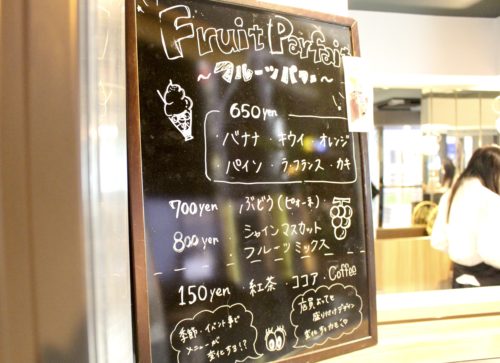 Fruit Parfait
～フルーツパフェ～
650yen
・バナナ ・キウイ ・オレンジ
・パイン ・ラ・フランス ・カキ
700yen ・ぶどう(ピオーネ)
800yen ・シャインマスカット
・フルーツミックス
150yen ・紅茶 ・ココア ・Coffee
季節・イベント事で
メニューが
変化する!?
店員よっても
盛り付けデザイン
変化するかも